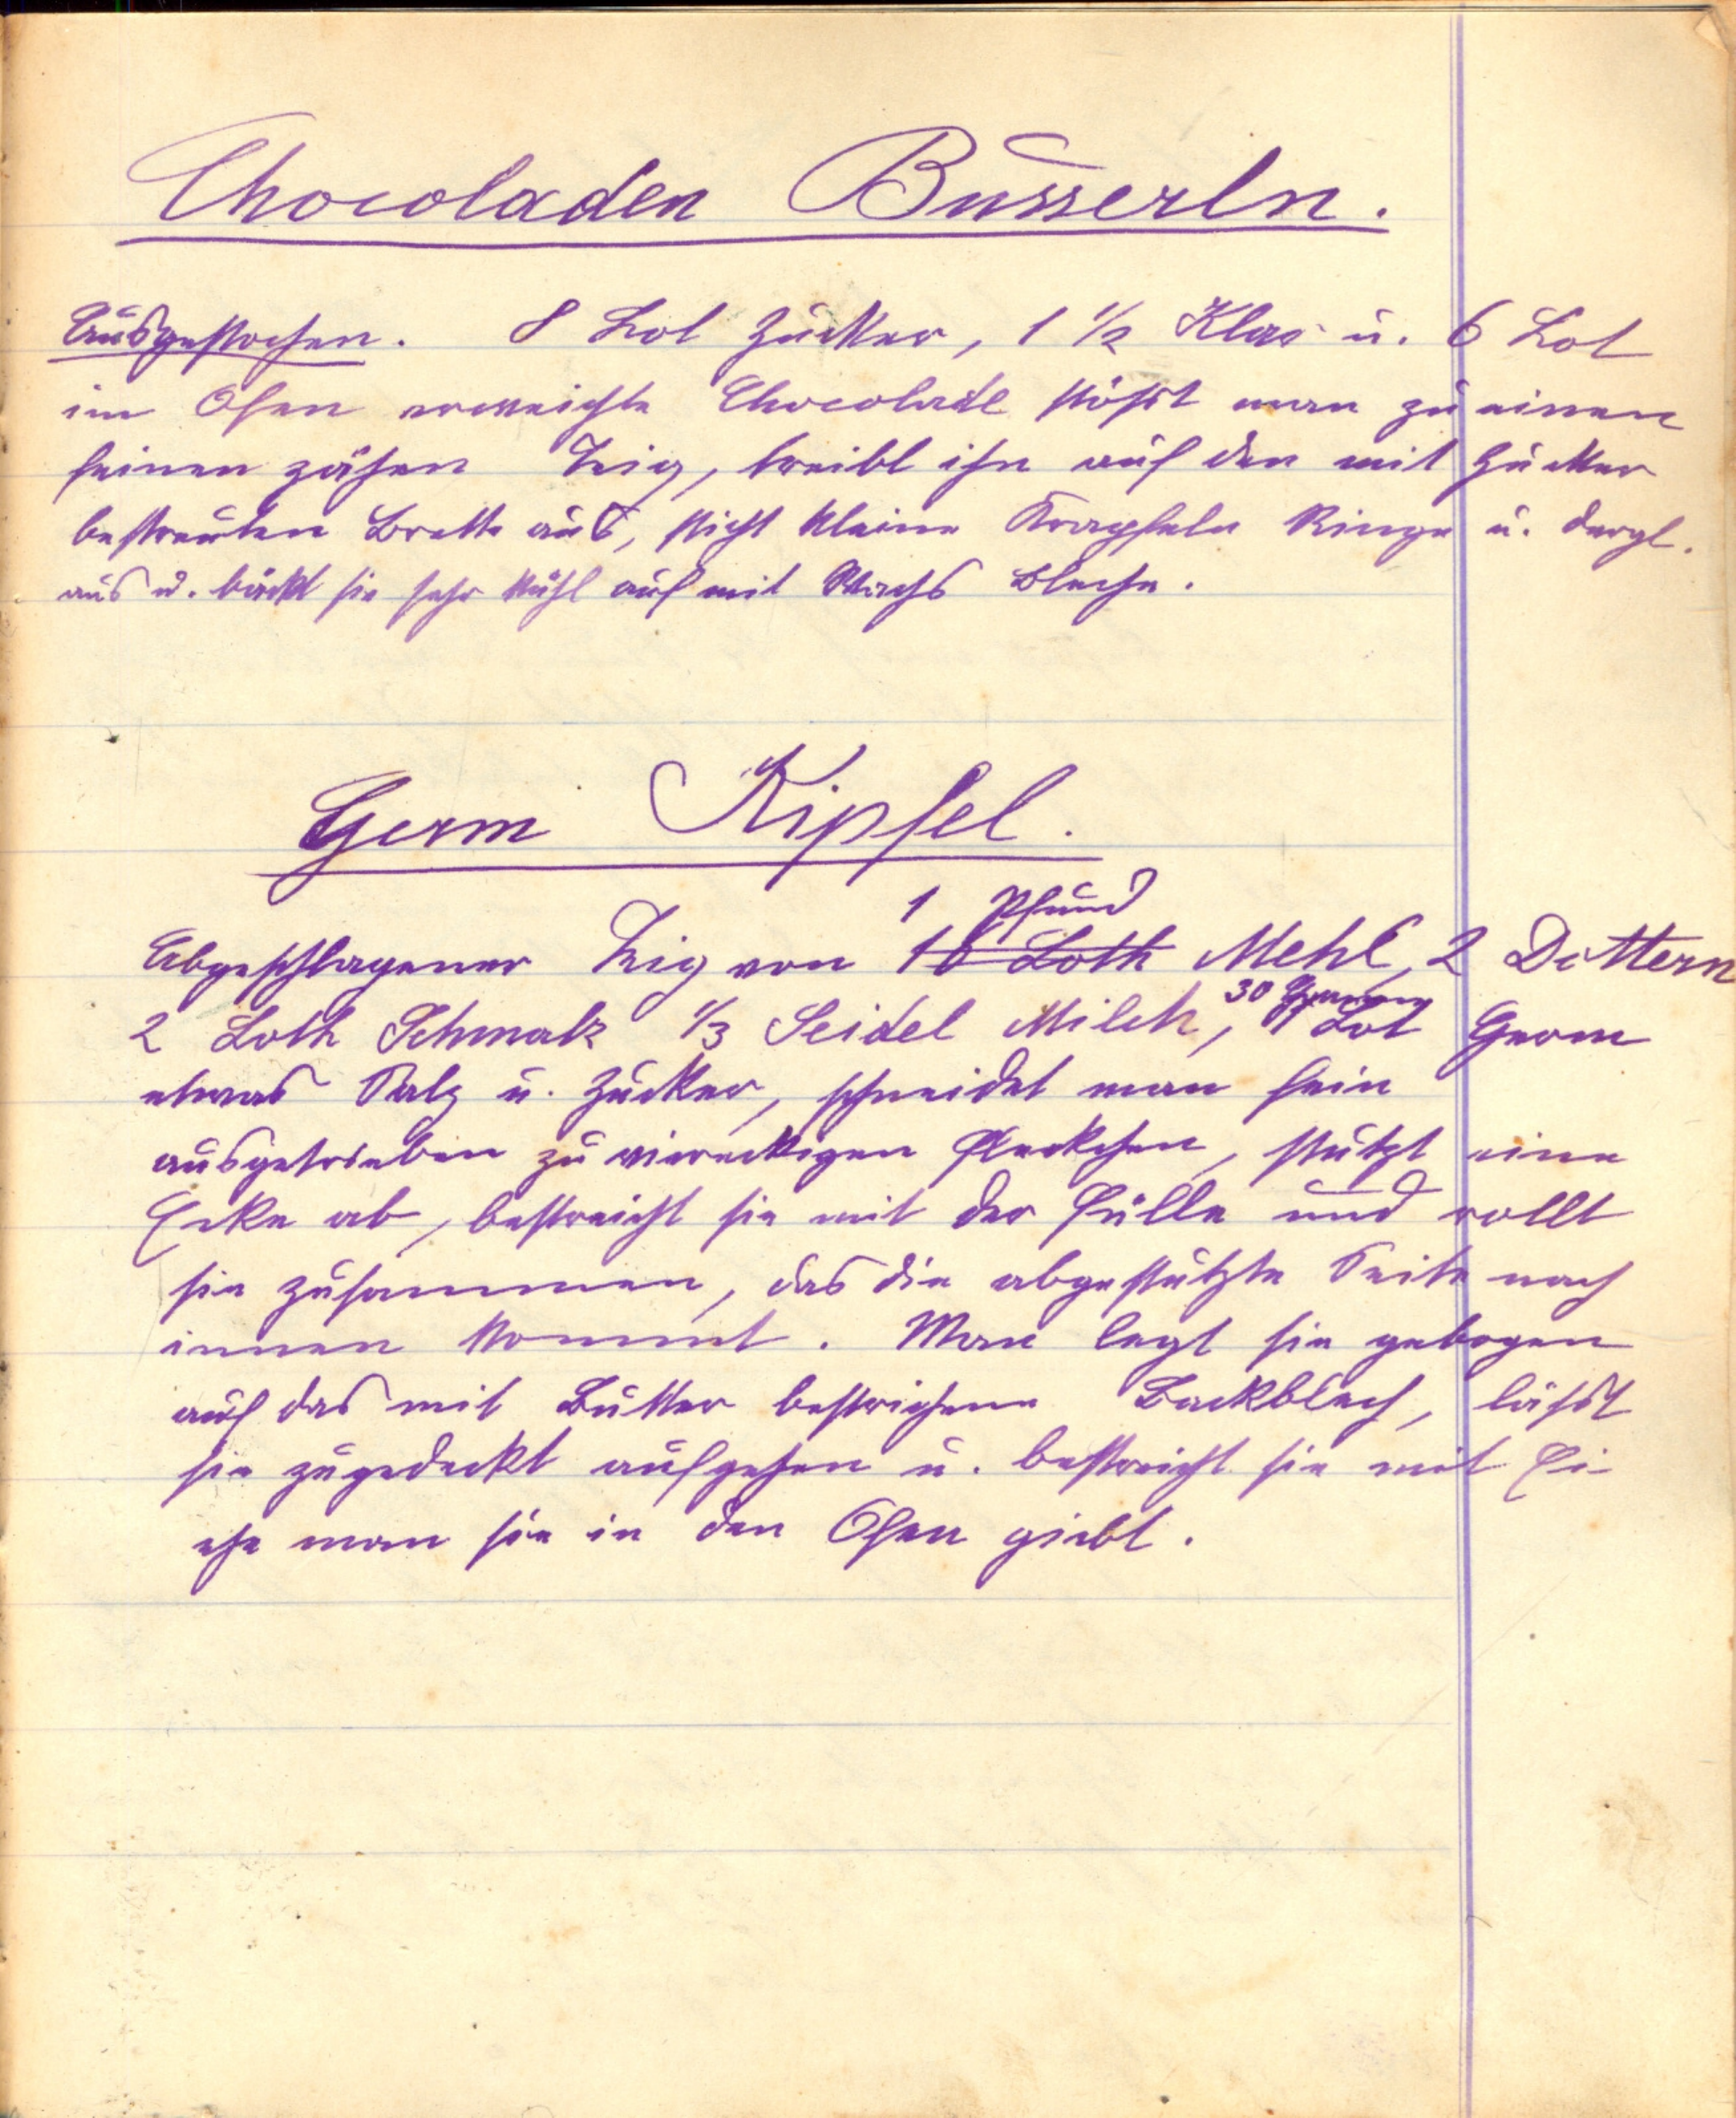 Chocoladen Busserln.
Ausgestochen. 8 Lot Zucker, 1 1/2 Klar u. 6 Lot
im Ofen erweichte Chocolade stößt man zu einen
feinen zähen Teig, treibt ihn auf den mit Zucker
bestreuten Brette aus, sticht kleine Krapfeln Ringe u. dergl.
aus u. bäckt sie sehr kühl auf mit Wachs Bleche.
Germ Kipfel.
1 Pfund
Abgeschlagener Teig von 16 Loth Mehl, 2 Dottern
30 Gramm
2 Loth Schmalz 1/3 Seidel Milch, 1 Lot Germ
etwas Salz u. Zucker, schneidet man fein
ausgetrieben zu viereckigen Fleckchen, stutzt eine
Ecke ab, bestreicht sie mit der Fülle und rollt
sie zusammen, das die abgestutzte Seite nach
innen kommt. Man legt sie gebogen
auf das mit Butter bestrichene Backblech, läßt
sie zugedeckt aufgehen u. bestreicht sie mit Ei
ehe man sie in den Ofen giebt.